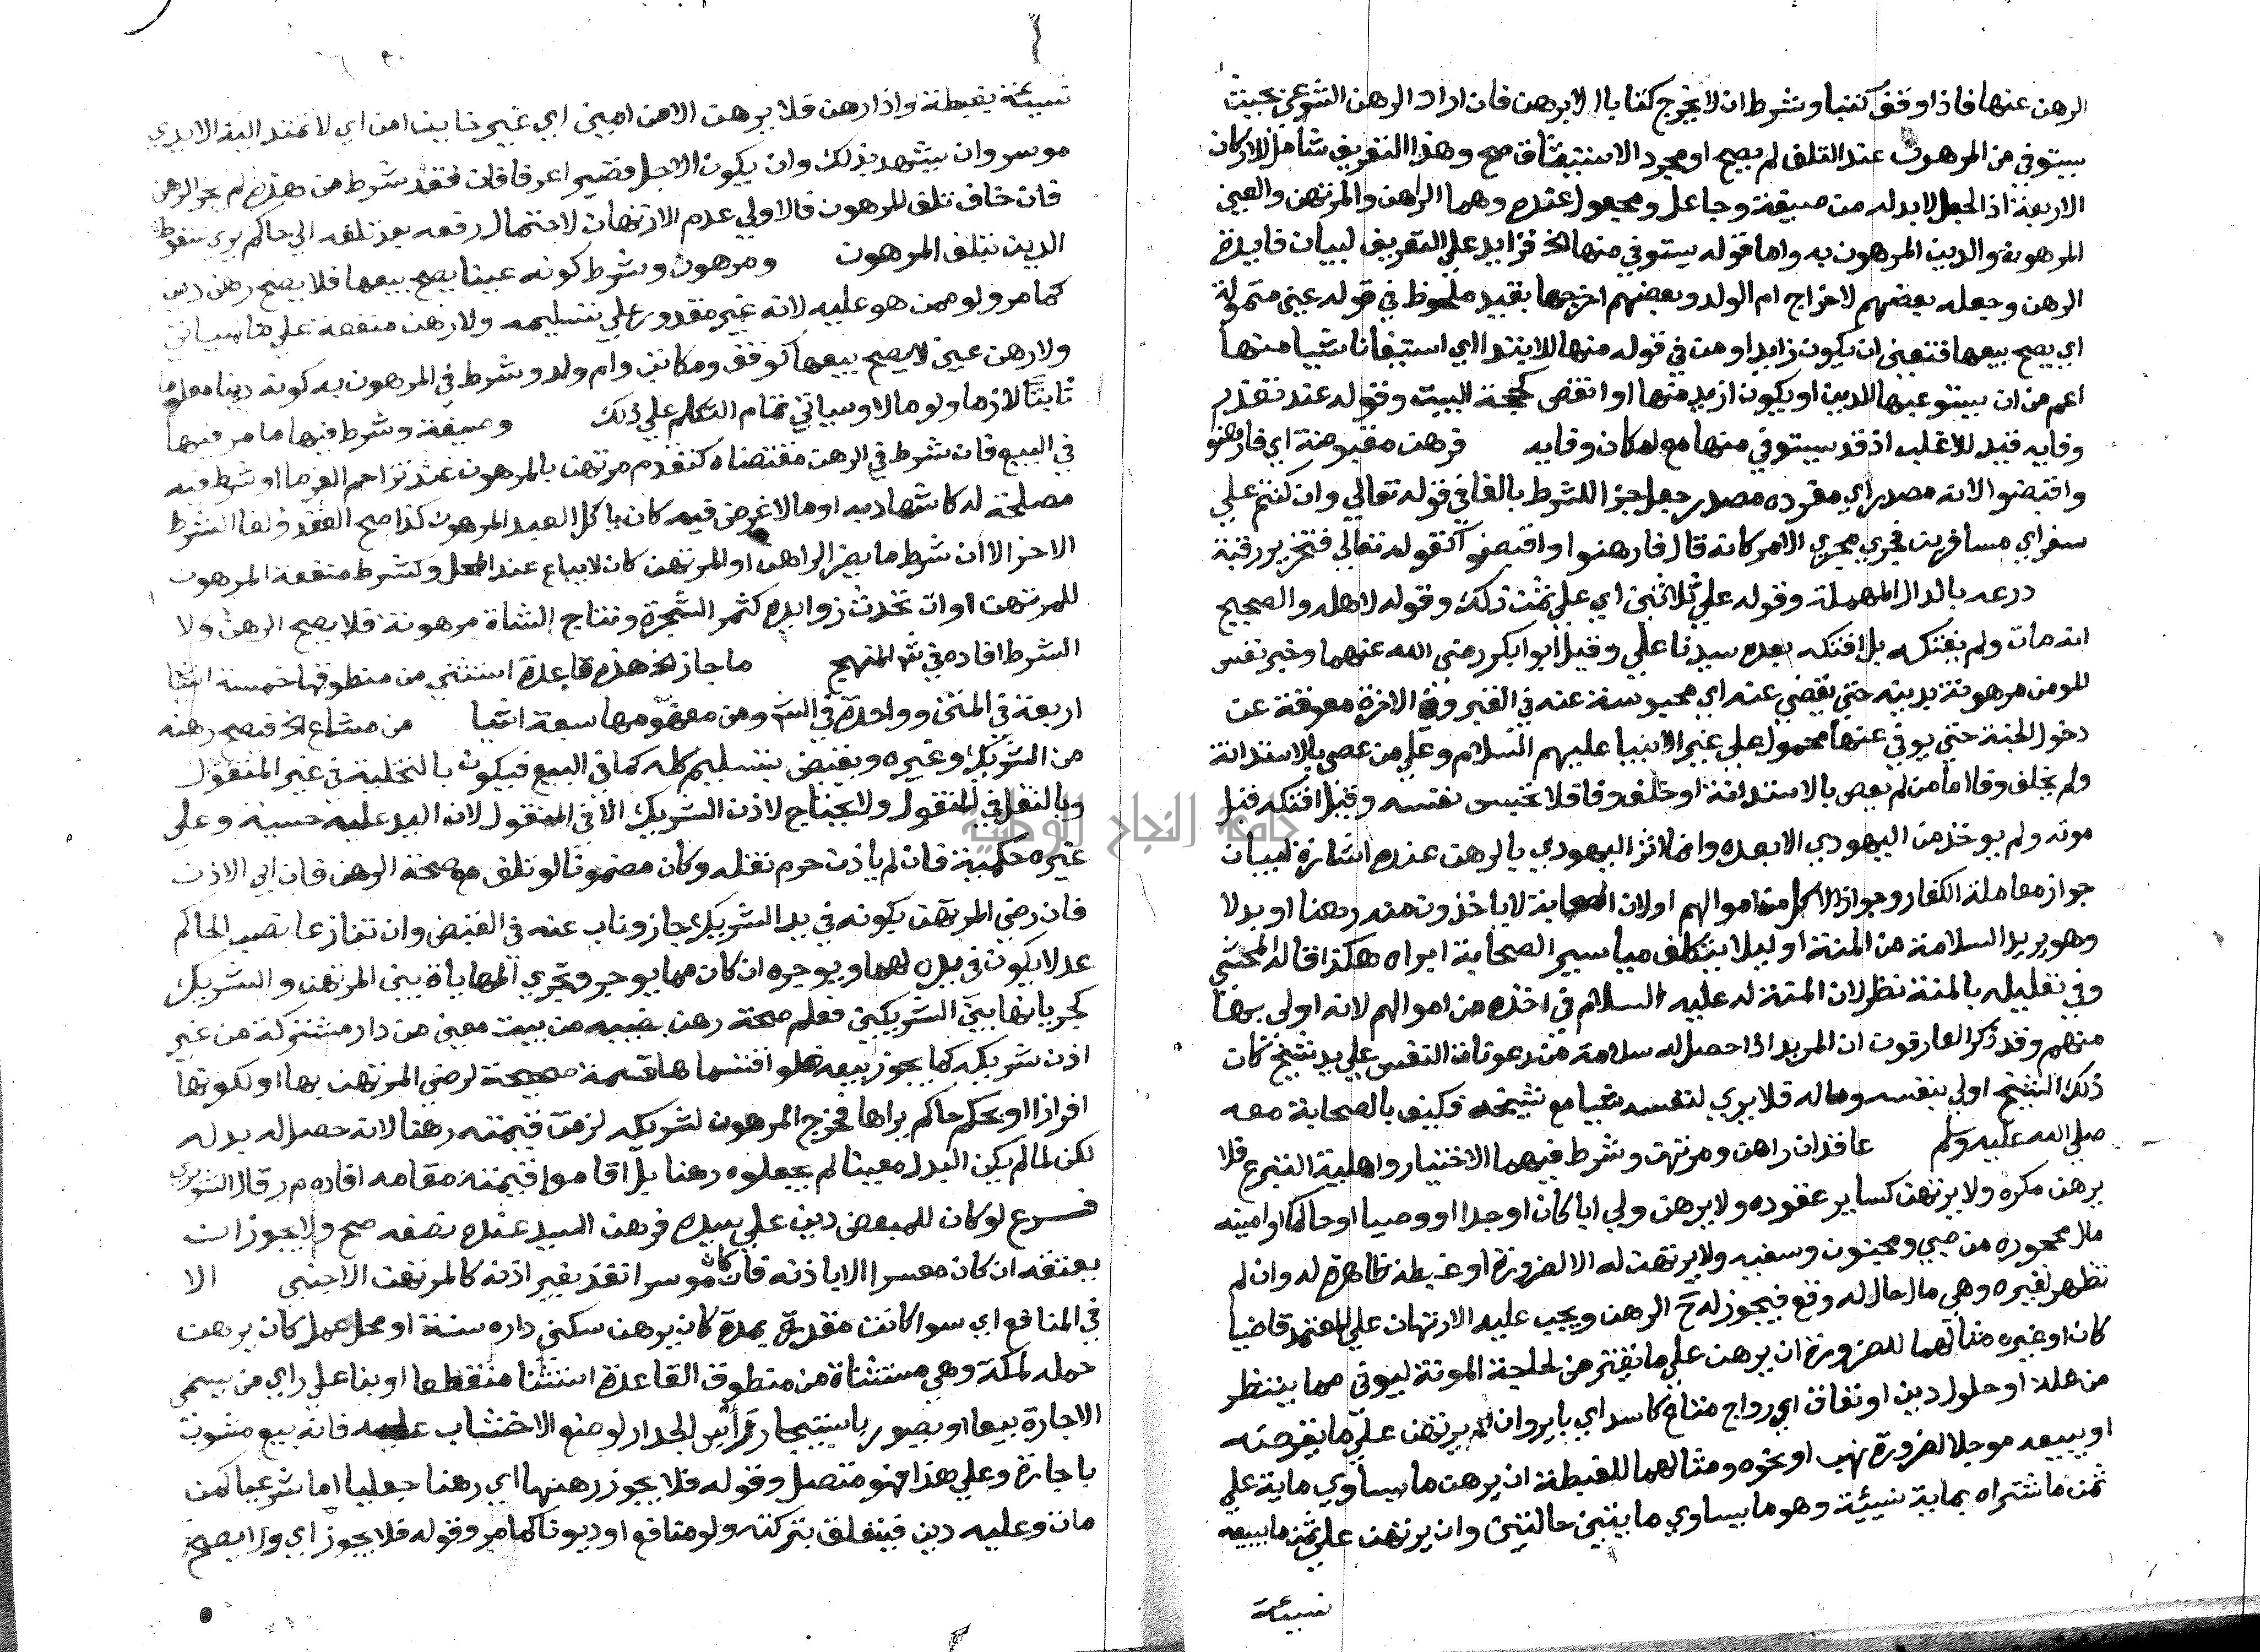 الرهن عنها فاذا وقف كتبا وشرط ان لا يخرج كتابا الا برهن فان اراد الرهن الشرعي بحيث
يستوفي من المرهون عند التلف لم يصح او مجرد الاستيثاق صح وهذا التعريف شامل للاركان
الاربعة اذ الجعل لابد له من صيغة وجاعل ومجعول عنده وهما الراهن والمرتهن والعين
المرهونة والدين المرهون به واما قوله يستوفي منها الخ فزايد علي التعريف لبيان فايدة
الرهن وجعله بعضهم لاخراج ام الولد وبعضهم اخرجها بقيد ملحوظ في قوله عين متمولة
اي يصح بيعها فتعين ان يكون زايدا ومن في قوله منها للابتدا اي استيفا ناشيا منها
اعم من ان يستوعبها الدين او يكون ازيد منها او انقص كحجة البيت وقوله عند تعذر
وفايه قيد للاغلب اذ قد يستوفي منها مع امكان وفايه فرهن مقبوضة اي فارهنوا
واقبضوا لانه مصدر اي مفرده مصدر جعل جزا للشرط بالفا في قوله تعالي وان كنتم علي
سفر اي مسافرين فجري مجري الامر كانه قال فارهنوا واقبضوا كقوله تعالي فتحرير رقبة
درعه بالدال المهملة وقوله علي ثلاثين اي علي ثمن ذلك وقوله لاهله والصحيح
انه مات ولم يفتكه بل افتكه بعده سيدنا علي وقيل ابو ابكر رضي الله عنهما وخبر نفس
المومن مرهونة بدينه حتي يقضي عنه اي محبوسة عنه في القبر وفي الاخرة معوقة عن
دخول الجنة حتي يوفي عنها محمول علي غير الانبيا عليهم السلام وعلي من عصي بالاستدانة
ولم يخلف وفا اما من لم يعص بالاستدانة او خلف وفا فلا تحبس نفسه وقيل افتكه قبل
موته ولم يوخذ من اليهودي الا بعده وانما اثر اليهودي بالرهن عنده اشارة لبيان
جواز معاملة الكفار وجواز الاكل من اموالهم او لان الصحابة لا ياخذون منه رهنا او بدلا
وهو يريد السلامة من المنة او ليلا يتكلف مياسير الصحابة ابراه هكذا قاله المحشي
وفي تعليله بالمنة نظر لان المنة له عليه السلام في اخذه من اموالهم لانه اولي بها
منهم وقد ذكر العارفون ان المريد اذا حصل له سلامة من رعونات النفس علي يد شيخ كان
ذلك الشيخ اولي بنفسه وماله فلا يري لنفسه شيا مع شيخه فكيف بالصحابة معه
صلي الله عليه وسلم عاقدان راهن ومرتهن وشرط فيهما الاختيار واهلية التبرع فلا
يرهن مكره ولا يرتهن كساير عقوده ولا يرهن ولي ابا كان او جدا او وصيا او حاكما او امينه
مال محجوره من صبي ومجنون وسفيه ولا يرتهن له الا لضرورة او غبطة ظاهرة له وان لم
تظهر لغيره وهي مال حال له وقع فيجوز له ح الرهن ويجب عليه الارتهان علي المعتمد قاضيا
كان او غيره مثالهما للضرورة ان يرهن علي ما يقترض لحاجة المونة ليوفي مما ينتظر
من غلة او حلول دين او نفاق اي رواج متاع كاسد اي باير وان يرتهن علي ما يقرضه
او يبيعه موجلا لضرورة نهب او نحوه ومثالهما للغبطة ان يرهن ما يساوي ماية علي
ثمن ما شتراه بماية نسيئة وهو ما يساوي مايتين حالتين وان يرتهن علي ثمن ما يبيعه
نسيئة
نسيئة بغبطة واذا رهن فلا يرهن الا من امين اي غير خاين امن اي لا تمتد اليه الايدي
موسر وان يشهد بذلك وان يكون الاجل قصيرا عرفا فان فقد شرط من هذه لم يجز الرهن
فان خاف تلف المرهون فالاولي عدم الارتهان لاحتمال رفعه بعد تلفه الي حاكم يري سقوط
الدين بتلف المرهون ومرهون وشرط كونه عينا يصح بيعها فلا يصح رهن دين
كما مر ولو ممن هو عليه لانه غير مقدور علي تسليمه ولا رهن منفعة علي ما سياتي
ولا رهن عين لا يصح بيعها كوقف ومكاتب وام ولد وشرط في المرهون به كونه دينا معلوما
ثابتا لازما ولو مالا وسياتي تمام التكلم علي ذلك وصيغة وشرط فيها ما مر فيها
في البيع فان شرط في الرهن مقتضاه كتقدم مرتهن بالمرهون عند تزاحم الغرما او شرط فيه
مصلحة له كاشهاد به او ما لا غرض فيه كان ياكل العبد المرهون كذا صح العقد ولغا الشرط
الاخر الا ان شرط ما يضر الراهن او المرتهن كان لا يباع عند المحل وكشرط منفعة المرهون
للمرتهن او ان تحدث زوايده كثمر الشجرة ونتاج الشاة مرهونة فلا يصح الرهن ولا
الشرط افاده في ش المنهج ما جاز الخ هذه قاعدة استثني من منطوقها خمسة اشيا
اربعة في المتن وواحدة في الش ومن مفهومها سبعة اشيا من مشاع الخ فيصح رهنه
من الشريك وغيره ويقبض بتسليم كله كما في البيع فيكون بالتخلية في غير المنقول
وبالنقل في المنقول ولا يحتاج لاذن الشريك الا في المنقول لان اليد عليه حسية وعلي
غيره حكمية فان لم ياذن حرم نقله وكان مضمونا لو تلف مع صحة الرهن فان ابي الاذن
فان رضي المرتهن بكونه في يد الشريك جاز وناب عنه في القبض وان تنازعا نصب الحاكم
عدلا يكون في يده لهما ويوجره ان كان مما يوجر وتجري المهاياة بين المرتهن والشريك
كجريانها بين الشريكين فعلم صحة رهن نصيبه من بيت معين من دار مشتركة من غير
اذن شريكه كما يجوز بيعه فلو اقتسماها قسمة صحيحة لرضي المرتهن بها او لكونها
افرازا او بحكم حاكم يراها فخرج المرهون لشريكه لزمه قيمته رهنا لانه حصل له بدله
لكن لما لم يكن البدل معينا لم يجعلوه رهنا بل اقاموا قيمته مقامه افاده م ر قال الشوبري
فرع لو كان للمبعض دين علي سيده فرهن السيد عنده نصفه صح ولا يجوز ان
يعتقه ان كان معسرا الا باذنه فان كان موسرا نفذ بغير اذنه كالمرتهن الاجنبي الا
في المنافع اي سوا كانت مقدرة بمدة كان يرهن سكني داره سنة او محل عمل كان يرهن
حمله لمكة وهي مستثناة من منطوق القاعدة استثنا منقطعا او بنا علي راي من يسمي
الاجارة بيعا او يصور باستيجار راس الجدار لوضع الاخشاب عليه فانه بيع مشوب
باجارة وعلي هذا فهو متصل وقوله فلا يجوز رهنها اي رهنا جعليا اما شرعيا كمن
مات وعليه دين فيتعلق بتركته ولو منافع او ديونا كما مر وقوله فلا يجوز اي ولا يصح
جامعة النجاح الوطنية